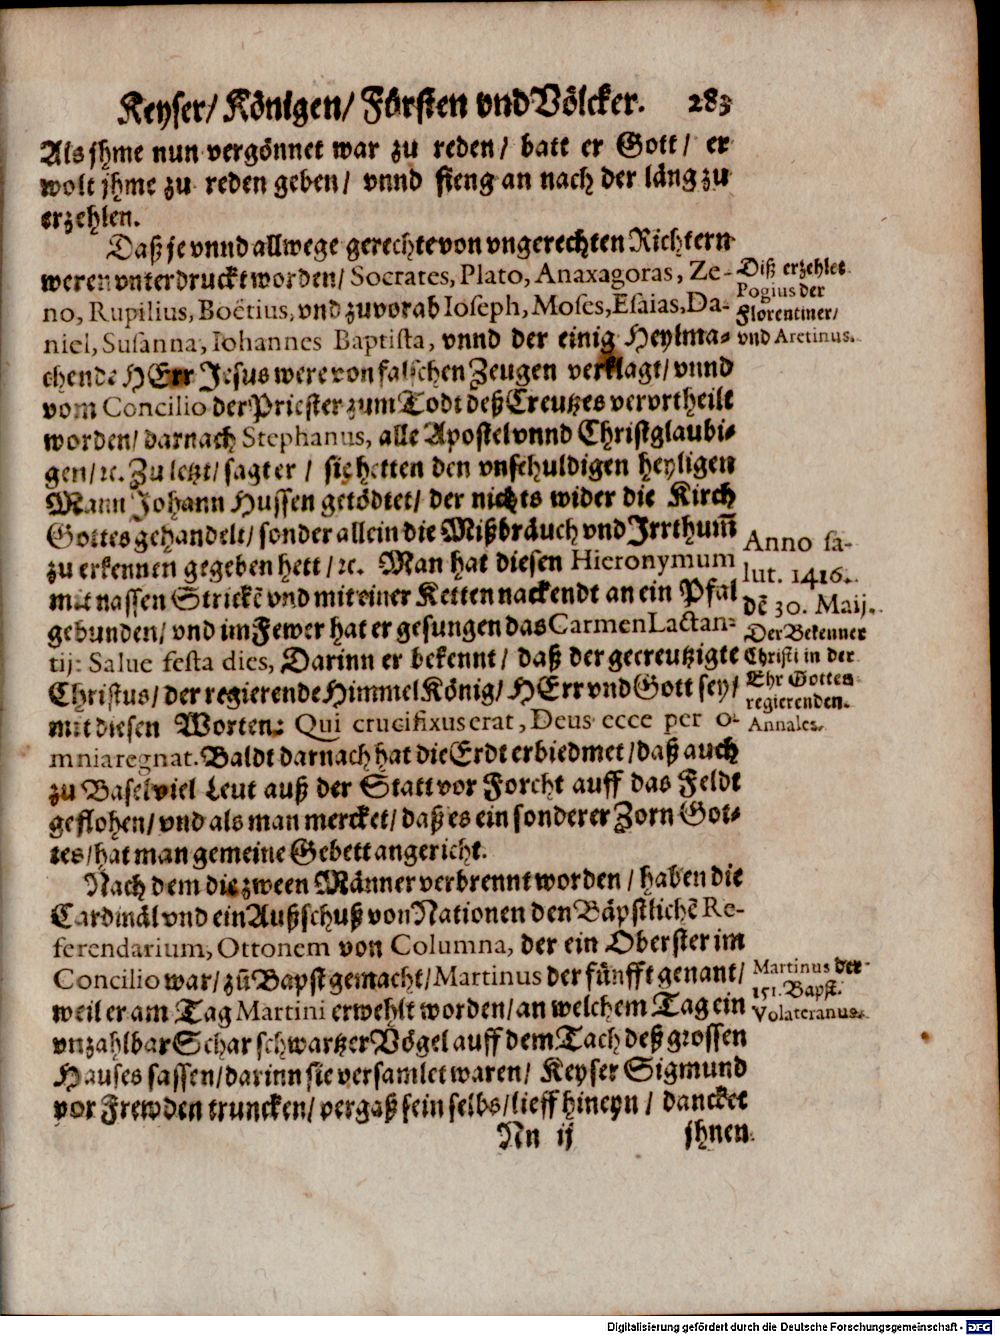 Keyser/ Königen/ Fürsten vnd Völcker. 283
Als jhme nun vergönnet war zu reden/ batt er Gott/ er
wolt jhme zu reden geben/ vnnd fieng an nach der läng zu
erzehlen.
Daß je vnnd allwege gerechte von vngerechten Richtern
weren vnterdruckt worden/ Socrates, Plato, Anaxagoras, Ze-
no, Rupilius, Boëtius, vnd zuvorab Ioseph, Moses, Esaias, Da-
niel, Susanna, Iohannes Baptista, vnnd der einig Heylma-
chende HErr Jesus were von falschen Zeugen verklagt/ vnnd
vom Concilio der Priester zum Todt deß Creutzes verurtheilt
worden/ darnach Stephanus, alle Apostel vnnd Christglaubi-
gen/ ꝛc. Zu letzt/ sagt er / sie hetten den vnschuldigen heyligen
Mann Johann Hussen getödtet/ der nichts wider die Kirch
Gottes gehandelt/ sonder allein die Mißbräuch vnd Irrthum̃
zu erkennen gegeben hett / ꝛc. Man hat diesen Hieronymum
mit nassen Strickẽ vnd mit einer Ketten nackendt an ein Pfal
gebunden/ vnd im Fewer hat er gesungen das Carmen Lactan-
tij: Salue festa dies, Darinn er bekennt/ daß der gecreutzigte
Christus/ der regierende Himmel König/ HErr vnd Gott sey/
mit diesen Worten: Qui crucifixus erat, Deus ecce per o-
mnia regnat. Baldt darnach hat die Erdt erbiedmet/ daß auch
zu Basel viel Leut auß der Statt vor Forcht auff das Feldt
geflohen/ vnd als man mercket/ daß es ein sonderer Zorn Got-
tes/ hat man gemeine Gebett angericht.
Nach dem die zween Männer verbrennt worden / haben die
Cardinäl vnd ein Außschuß von Nationen den Bäpstlichẽ Re-
ferendarium, Ottonem von Columna, der ein Oberster im
Concilio war/ zũ Bapst gemacht/ Martinus der fünfft genant/
weil er am Tag Martini erwehlt worden/ an welchem Tag ein
vnzahlbar Schar schwartzer Vögel auff dem Tach deß grossen
Hauses sassen/ darinn sie versamlet waren/ Keyser Sigmund
vor Frewden truncken/ vergaß sein selbs/ lieff hineyn / dancket
Nn ij jhnen
Diß erzehlet
Pogius der
Florentiner/
vnd Aretinus.
Anno sa-
lut. 1416.
dẽ 30. Maij.
Der Bekenner
Christi in der
Ehr Gottes
regierenden.
Annales.
Martinus der
151. Bapst.
Volateranus.
Digitalisierung gefördert durch die Deutsche Forschungsgemeinschaft - DFG